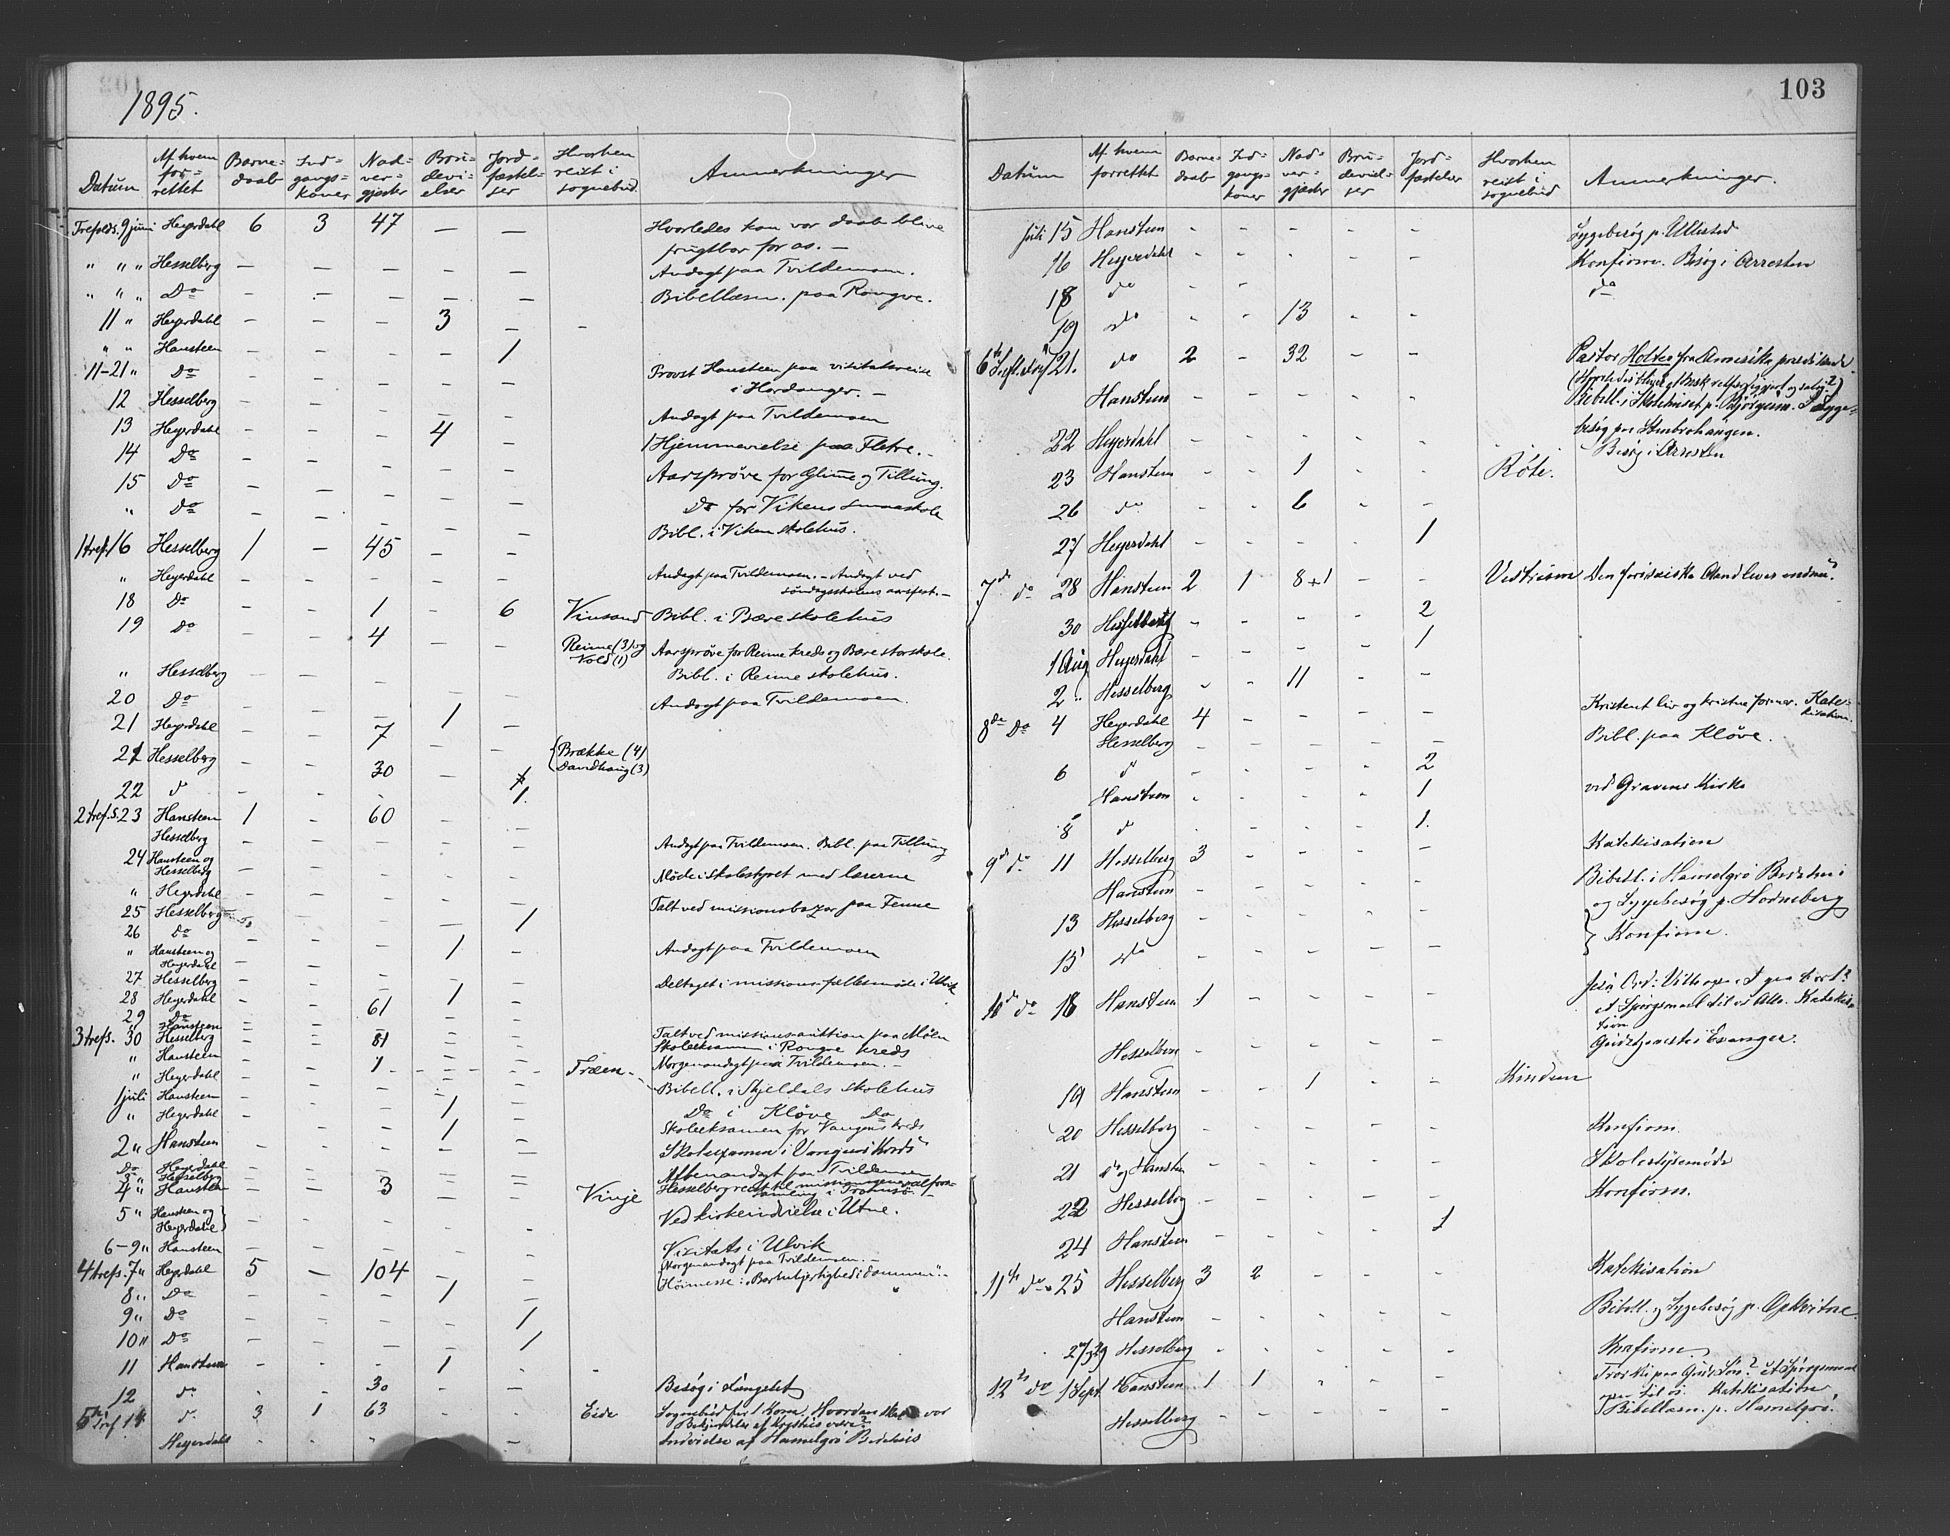 1895.
Datum Af hvem for- rettet Barne- daab Ind- gangs- koner Nad- ver- gjester Bru- devi- elser Jord- fæstel- ser Hvorhen reist i sognebud Anmerkninger
Trefolds. 9 juni Heyerdahl 6 3 47 — — Hvorledes kan vor daab blive
frugtbar for os. —
" " " Hesselberg — — — — — Andagt paa Tvildemoen.
" " " Do — — — — — Bibellæsn. paa Rongve.
11 " Heyerdahl — — — 3 — -
" " Hansteen — — — — 1
11-21 " Do — — — — — Provst Hansteen paa visitatsreise
i Hardanger. —
12 Hesselberg — — — — — Andagt paa Tvildemoen
13 Heyerdahl — — — 4 — Hjemmevielse paa Fletre. —
14 Do — — — — — Aarsprøve for Glimme og Tillung.
15 Do — — — — — Do for Vikens smaaskole
" Do — — — — — Bibl. i Viken skolehus.
1 tref. 16 Hesselberg 1 — 45 — —
" Heyerdahl — — — — — Andagt paa Tvildemoen. — Andagt ved
søndagsskolens aarsfest. —
18 Do — — 1 — 6 Vinsand Bibl. i Bære skolehus
19 Do — — 4 — — Reime (3) og Vold (1) Aarsprøve for Reime kreds og Bære storskole.
" Hesselberg — — — — — Bibl. i Reime skolehus.
20 Do — — — — — Andagt paa Tvildemoen.
21 Heyerdahl — — — 1 —
21 Hesselberg — — 7 — — Brække (4) Dandhaug (3)
22 d — — 30 — 1
2 tref. s. 23 Hansteen 1 - 60 — —
Hesselberg — Andagt paa Tvildemoen. Bibl. paa Tillung
24 Hansteen og Hesselberg — Møde i skolestyret med lærerne
" Heyerdahl — Talt ved missionsbazar paa Fenne
25 Hesselberg — — — — 1
26 Do — — — 1 — Andagt paa Tvildemoen
" Hansteen og Heyerdahl — Deltaget i missions-fællesmøde i Ulvik
27 Hesselberg — — — 1 —
28 Heyerdahl — — 61 — —
29 Do
Hansteen — Talt ved missionsauktion paa Mølen
3 trefs. 30 Hesselberg — — 81 — — Skoleeksamen i Rongve kreds
" Hansteen — — 1 - — Træen - Morgenandagt paa Tvildemoen. —
" Heyerdahl — Bibell. i Skjeldals skolehus
1 juli Hansteen — Do i Kløve Do
" Heyerdahl — — — 1 — Skoleeksamen for Vangens kreds
2 " Hansteen — — — 1 — Skoleexamen i Vangens Kreds
Do Heyerdahl — Aftenandagt paa Tvildemoen
3 " Hesselberg — Hesselberg reist til missionsgeneralfor-
samling i Tromsø. —
4 " Hansteen — — 3 — — Vinje
5 " Hansteen og Heyerdahl — Ved kirkeindvielse i Utne.
6-9 " Hansteen — Visitats i Ulvik
4 trefs. 7 " Heyerdahl 5 — 104 — — Morgenandagt paa Tvildemoen. —
Høimesse: "Barmhjertighed i dommen".
8 " Do — — — 1 —
9 " Do — — — — 1
10 " Do — — — — 1
11 Hansteen - - - 1 - -
12 do - - 30 — — Besøg i Fængslet
5te Tref. 14 d 3 1 63 - - Eide Sognebud for 1 Kone. Hvordan skal vor
Bekjendelse af Kristus være?
Heyerdahl - - - - - Indvielse af Hamelgrø Bedehus
103
Datum Af hvem forrettet Barne- daab Ind- gangs- koner Nad- ver- gjester Bru- devid- ser Jord- fæstelser Hvorhen reist i sognebud Anmerkninger.
juli 15 Hansteen - - - - - Sygebesøg p. Ullestad
16 Heyerdahl - - - - - Konfirm. Besøg i Arresten
18 do - - - do
19 do - - 13 - -
6te S. e. Tref. 21. do 2 - 32 - - Pastor Holter fra Amerika prædikede.
Hansteen Bibell. i Skolehuset p. Bjørgum. Syge-
besøg paa
22 Heyerdahl - - - - - Besøg i Arresten
23 Hansteen - - 1 - - Røte.
26 do - - 6 - -
27 Heyerdahl 1
7de do 28 Hansteen 2 1 8+1 - -
30 Hesselberg - - - - 2
1 Aug Heyerdahl - - - - 1
2 " Hesselberg - - 11 - -
8de Do 4 Heyerdahl 4 - - - - Kristent liv og kristne former. Kate-
kisation.
Hesselberg - - - - - Bibl. paa Kløve.
6 d - - - - 2
Hansteen - - - - 1 ved Gravens Kirke
8 d - - - - 1.
9de do 11 Hesselberg 3 - - - - Katekisation
Hansteen - - - - - Bibell. i Hamelgrø Bedehus
og Sygebesøg p. Horneberg
13 Hesselberg - - - - - Konfirm.
15 do - - - - -
10de do 18 Hansteen 1 - - - -
et Spørgsmaal til os Alle. Katekisa-
tion
Hesselberg Gudstjeneste i Evanger.
19 Hansteen - - 1 - - Kindem
20 Hesselberg - - - - - Konfirm.
21 do og Hansteen - - - - - Skolestyremøde
22 Hesselberg - - - - - Konfirm.
24 Hansteen - - - - 1
11te do 25 Hesselberg 3 2 - - - Katekisation
Hansteen - - - - - Bibell. og Sygebesøg p. Opkvitne
27/29 Hesselberg - - - - - Konfirm.
12te do 1 Sept. Hansteen 1 1 - - - Tror du paa Guds Søn? Et Spørgsmaal
ogsaa til os. Katekisation.
Hesselberg Bibellæsn. p. Hamelgrø.